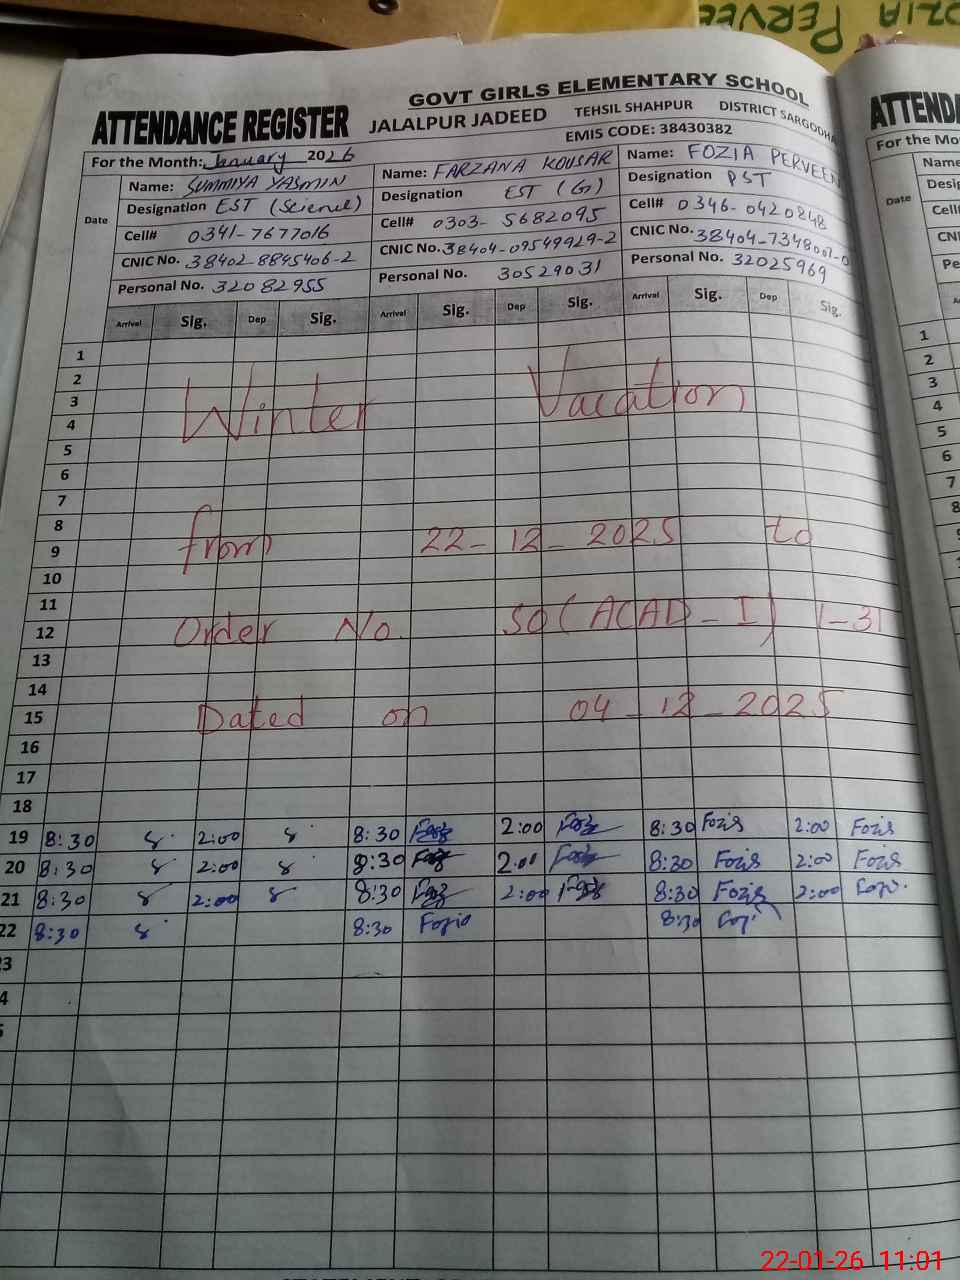 FOZIA PERVEEN
GOVT GIRLS ELEMENTARY SCHOOL
ATTENDANCE REGISTER JALALPUR JADEED TEHSIL SHAHPUR DISTRICT SARGODHA
EMIS CODE: 38430382
For the Month: January 2026
Date
Name: SUMMIYA YASMIN
Designation EST (Science)
Cell# 0341-7677016
CNIC No. 38402-8845406-2
Personal No. 32082955
Name: FARZANA KOUSAR
Designation EST (G)
Cell# 0303-5682095
CNIC No. 38404-09549929-2
Personal No. 30529031
Name: FOZIA PERVEEN
Designation PST
Cell# 0346-0420848
CNIC No. 38404-7348001-0
Personal No. 32025969
Arrival Sig. Dep Sig. Arrival Sig. Dep Sig. Arrival Sig. Dep Sig.
1
2
3
Winter Vacation
4
5
6
7
8
9
from 22-12-2025 to
10
11
12
Order No. SO(ACAD-I) 1-31
13
14
15
Dated on 04-12-2025
16
17
18
19 8:30 2:00 8:30 2:00 8:30 Fozia 2:00 Fozia
20 8:30 2:00 8:30 2:00 8:30 Fozia 2:00 Fozia
21 8:30 2:00 8:30 2:00 8:30 Fozia 2:00
22 8:30 8:30 Fozia 8:30
ATTENDA
For the Mo
Name
Date
Cell
1
2
3
4
5
6
7
8
10
11
12
13
14
15
16
17
18
19
20
21
22-01-26 11:01